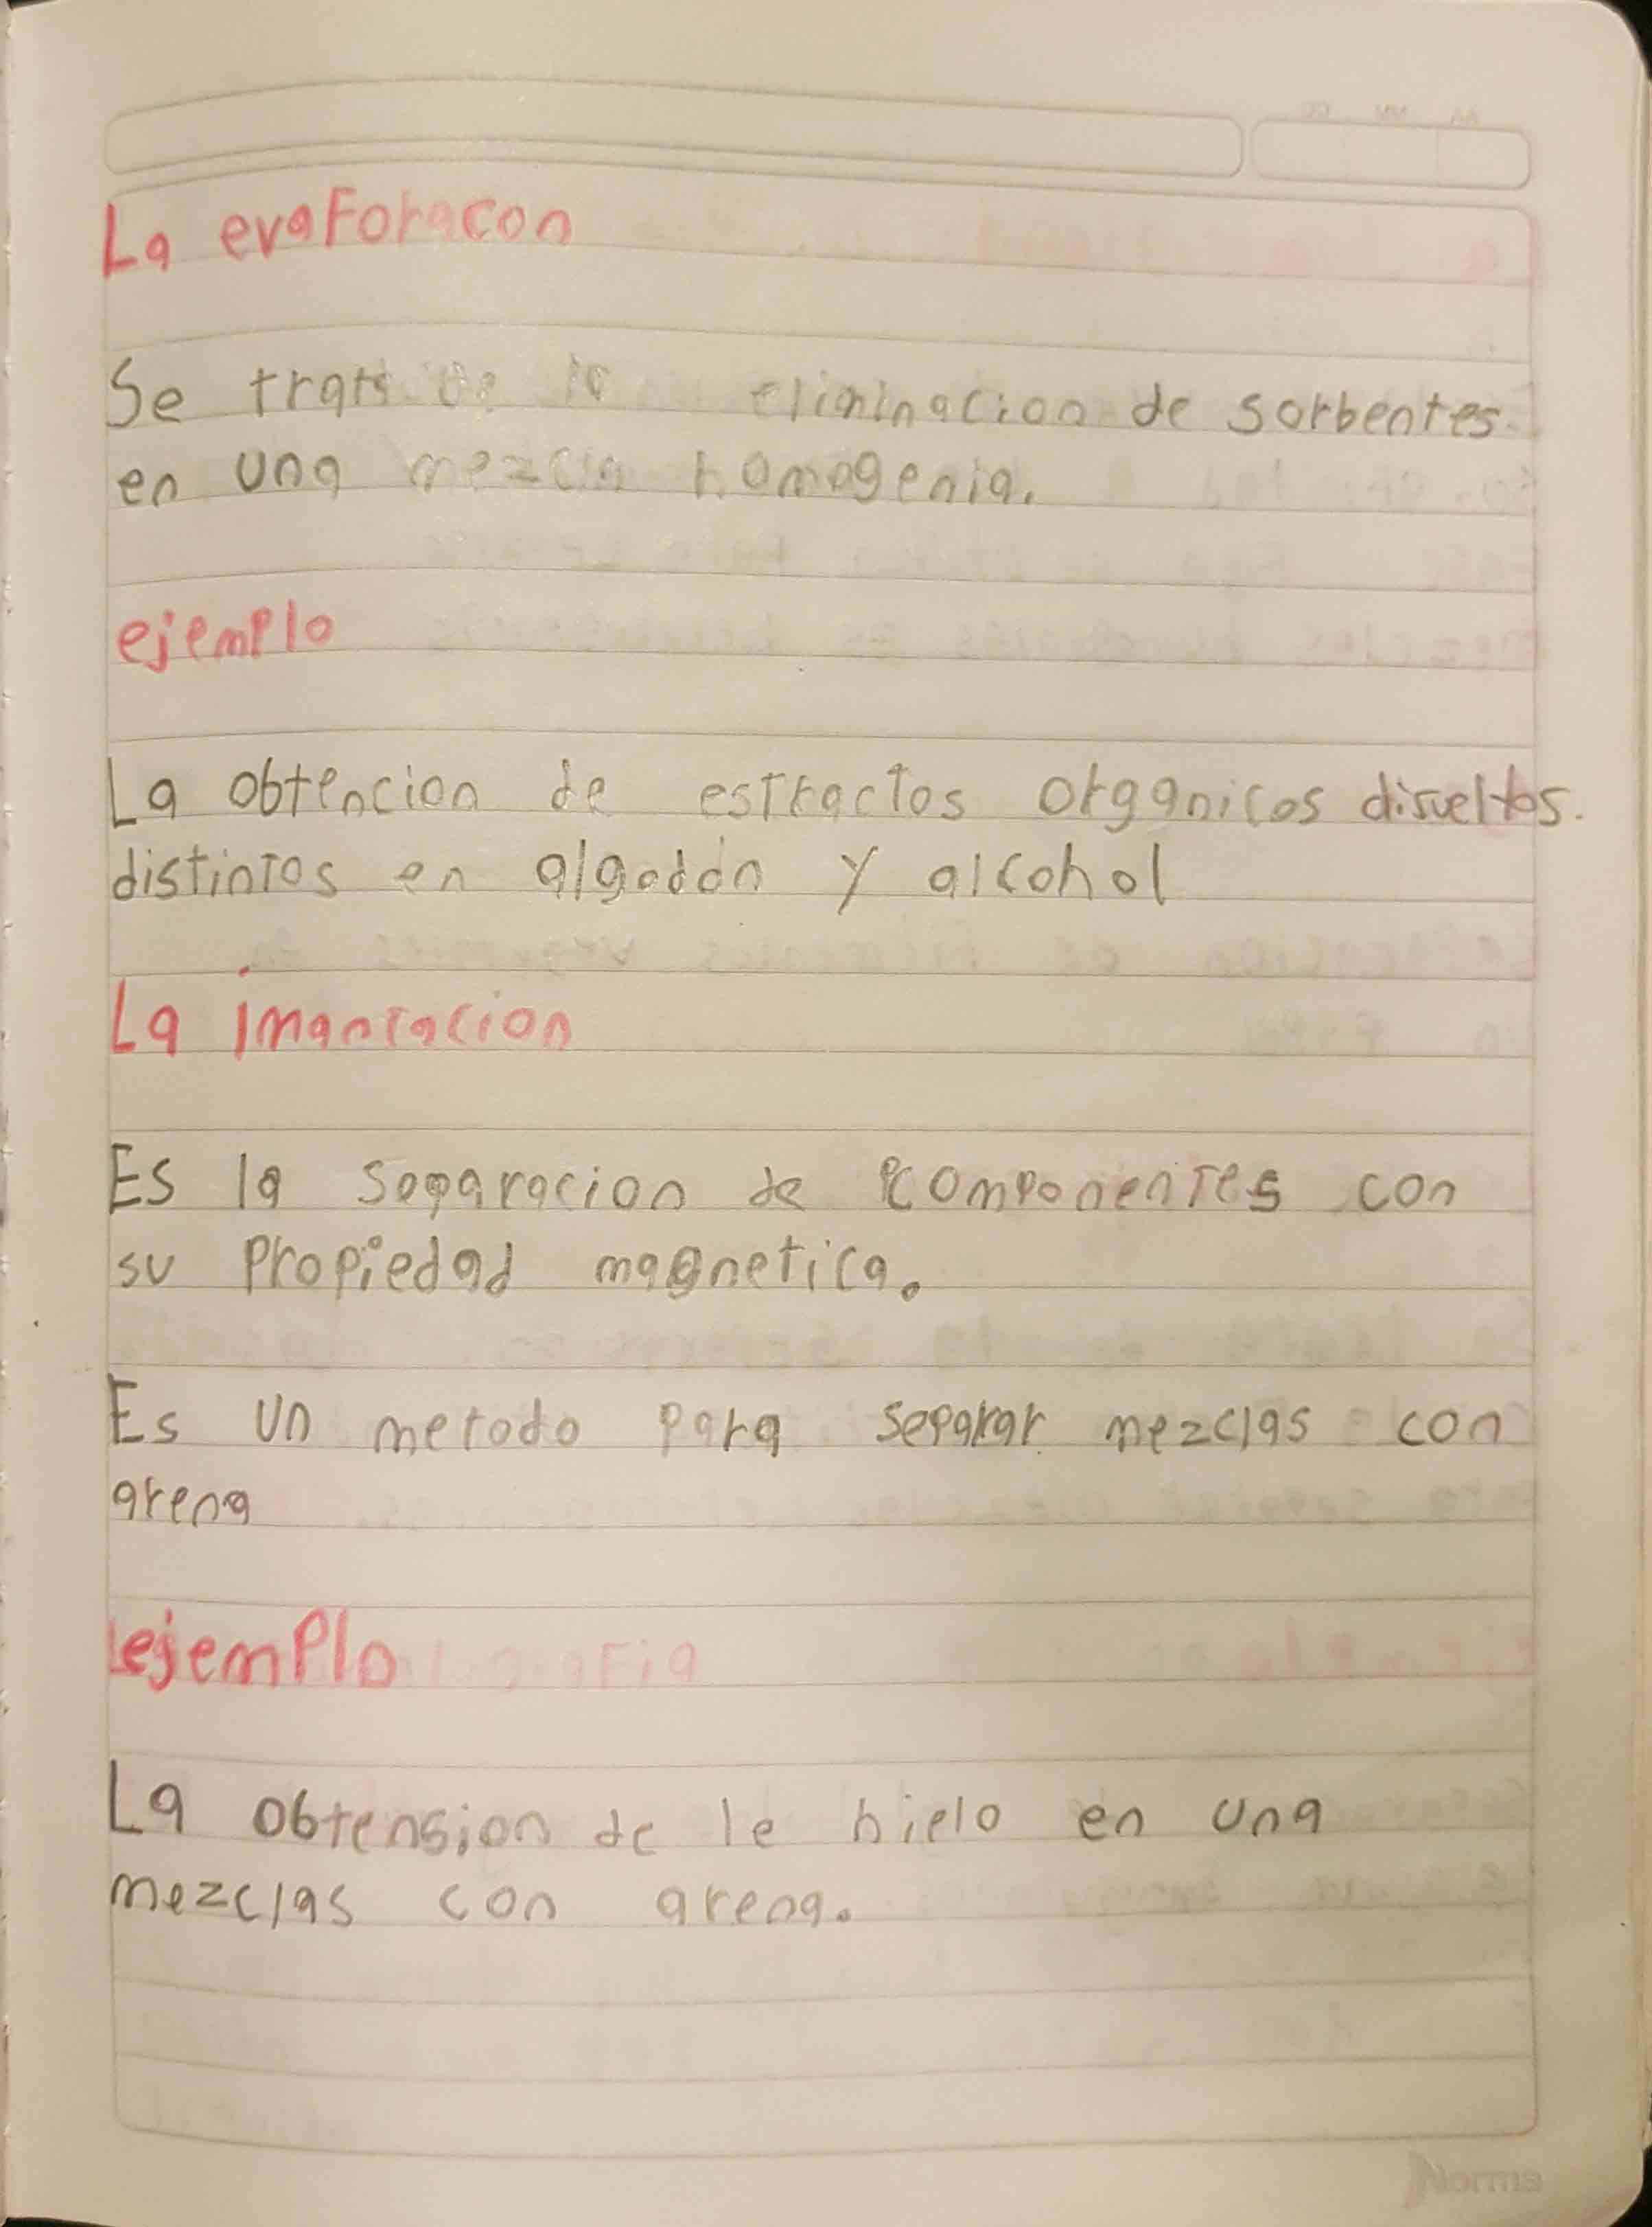 La evaForacon
Se trata de la eliminacion de sorbentes
en una mezcla homogenia.
ejemplo
La obtencion de estractos organicos disueltos.
distintos en algodón y alcohol
La imantacion
Es la separacion de componentes con
su propiedad magnetica.
Es un metodo para separar mezclas con
arena
ejemplo
La obtension de le hielo en una
mezclas con arena.
Norma